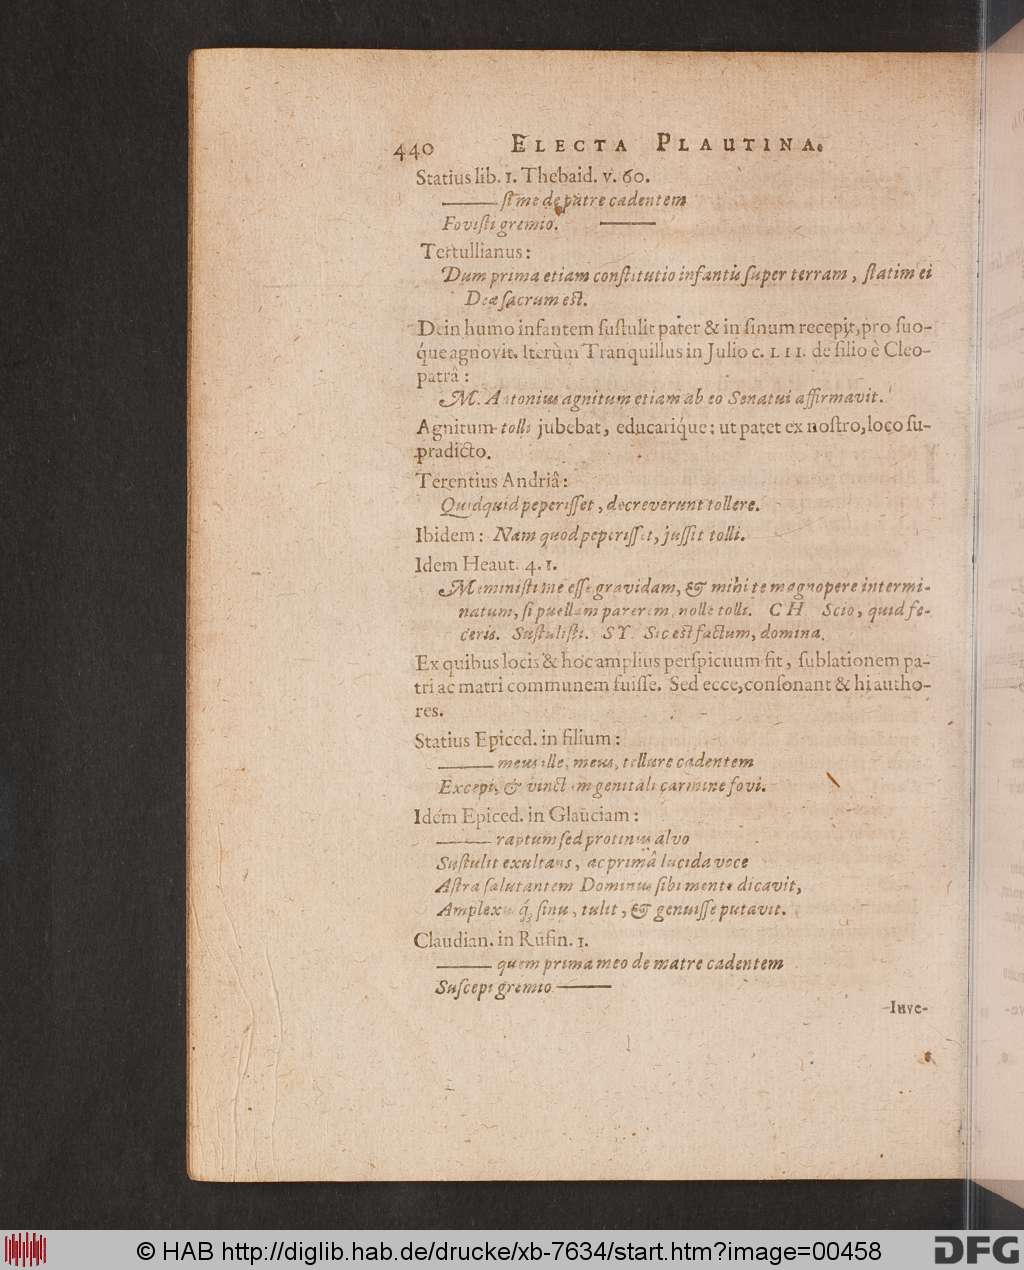 440 ELECTA PLAUTINA.
Statius lib. 1. Thebaid. v. 60.
——— si me de patre cadentem
Fovisti gremio. ———
Tertullianus:
Dum prima etiam constitutio infantis super terram, statim ei
Deæ sacrum est.
Dein humo infantem sustulit pater & in sinum recepit, pro suo-
que agnovit. Iterùm Tranquillus in Julio c. LII. de filio è Cleo-
patrâ:
M. Antonius agnitum etiam ab eo Senatui affirmavit.
Agnitum tolli jubebat, educarique: ut patet ex nostro, loco su-
pradicto.
Terentius Andriâ:
Quidquid peperisset, decreverunt tollere.
Ibidem: Nam quod peperisset, jussit tolli.
Idem Heaut. 4. 1.
Meministi me esse gravidam, & mihi te magnopere intermi-
natum, si puellam parerem, nolle tolli. CH Scio, quid fe-
ceris. Sustulisti. SY. Sic est factum, domina.
Ex quibus locis & hoc amplius perspicuum fit, sublationem pa-
tri ac matri communem fuisse. Sed ecce, consonant & hi autho-
res.
Statius Epiced. in filium:
——— meus ille, meus, tellure cadentem
Excepi, & vinctum genitali carmine fovi.
Idem Epiced. in Glauciam:
——— raptum sed protinus alvo
Sustulit exultans, ac primâ lucida voce
Astra salutantem Dominus sibi mente dicavit,
Amplexuq́; sinu, tulit, & genuisse putavit.
Claudian. in Rufin. 1.
——— quem prima meo de matre cadentem
Suscepi gremio ———
Inve-
© HAB http://diglib.hab.de/drucke/xb-7634/start.htm?image=00458
DFG